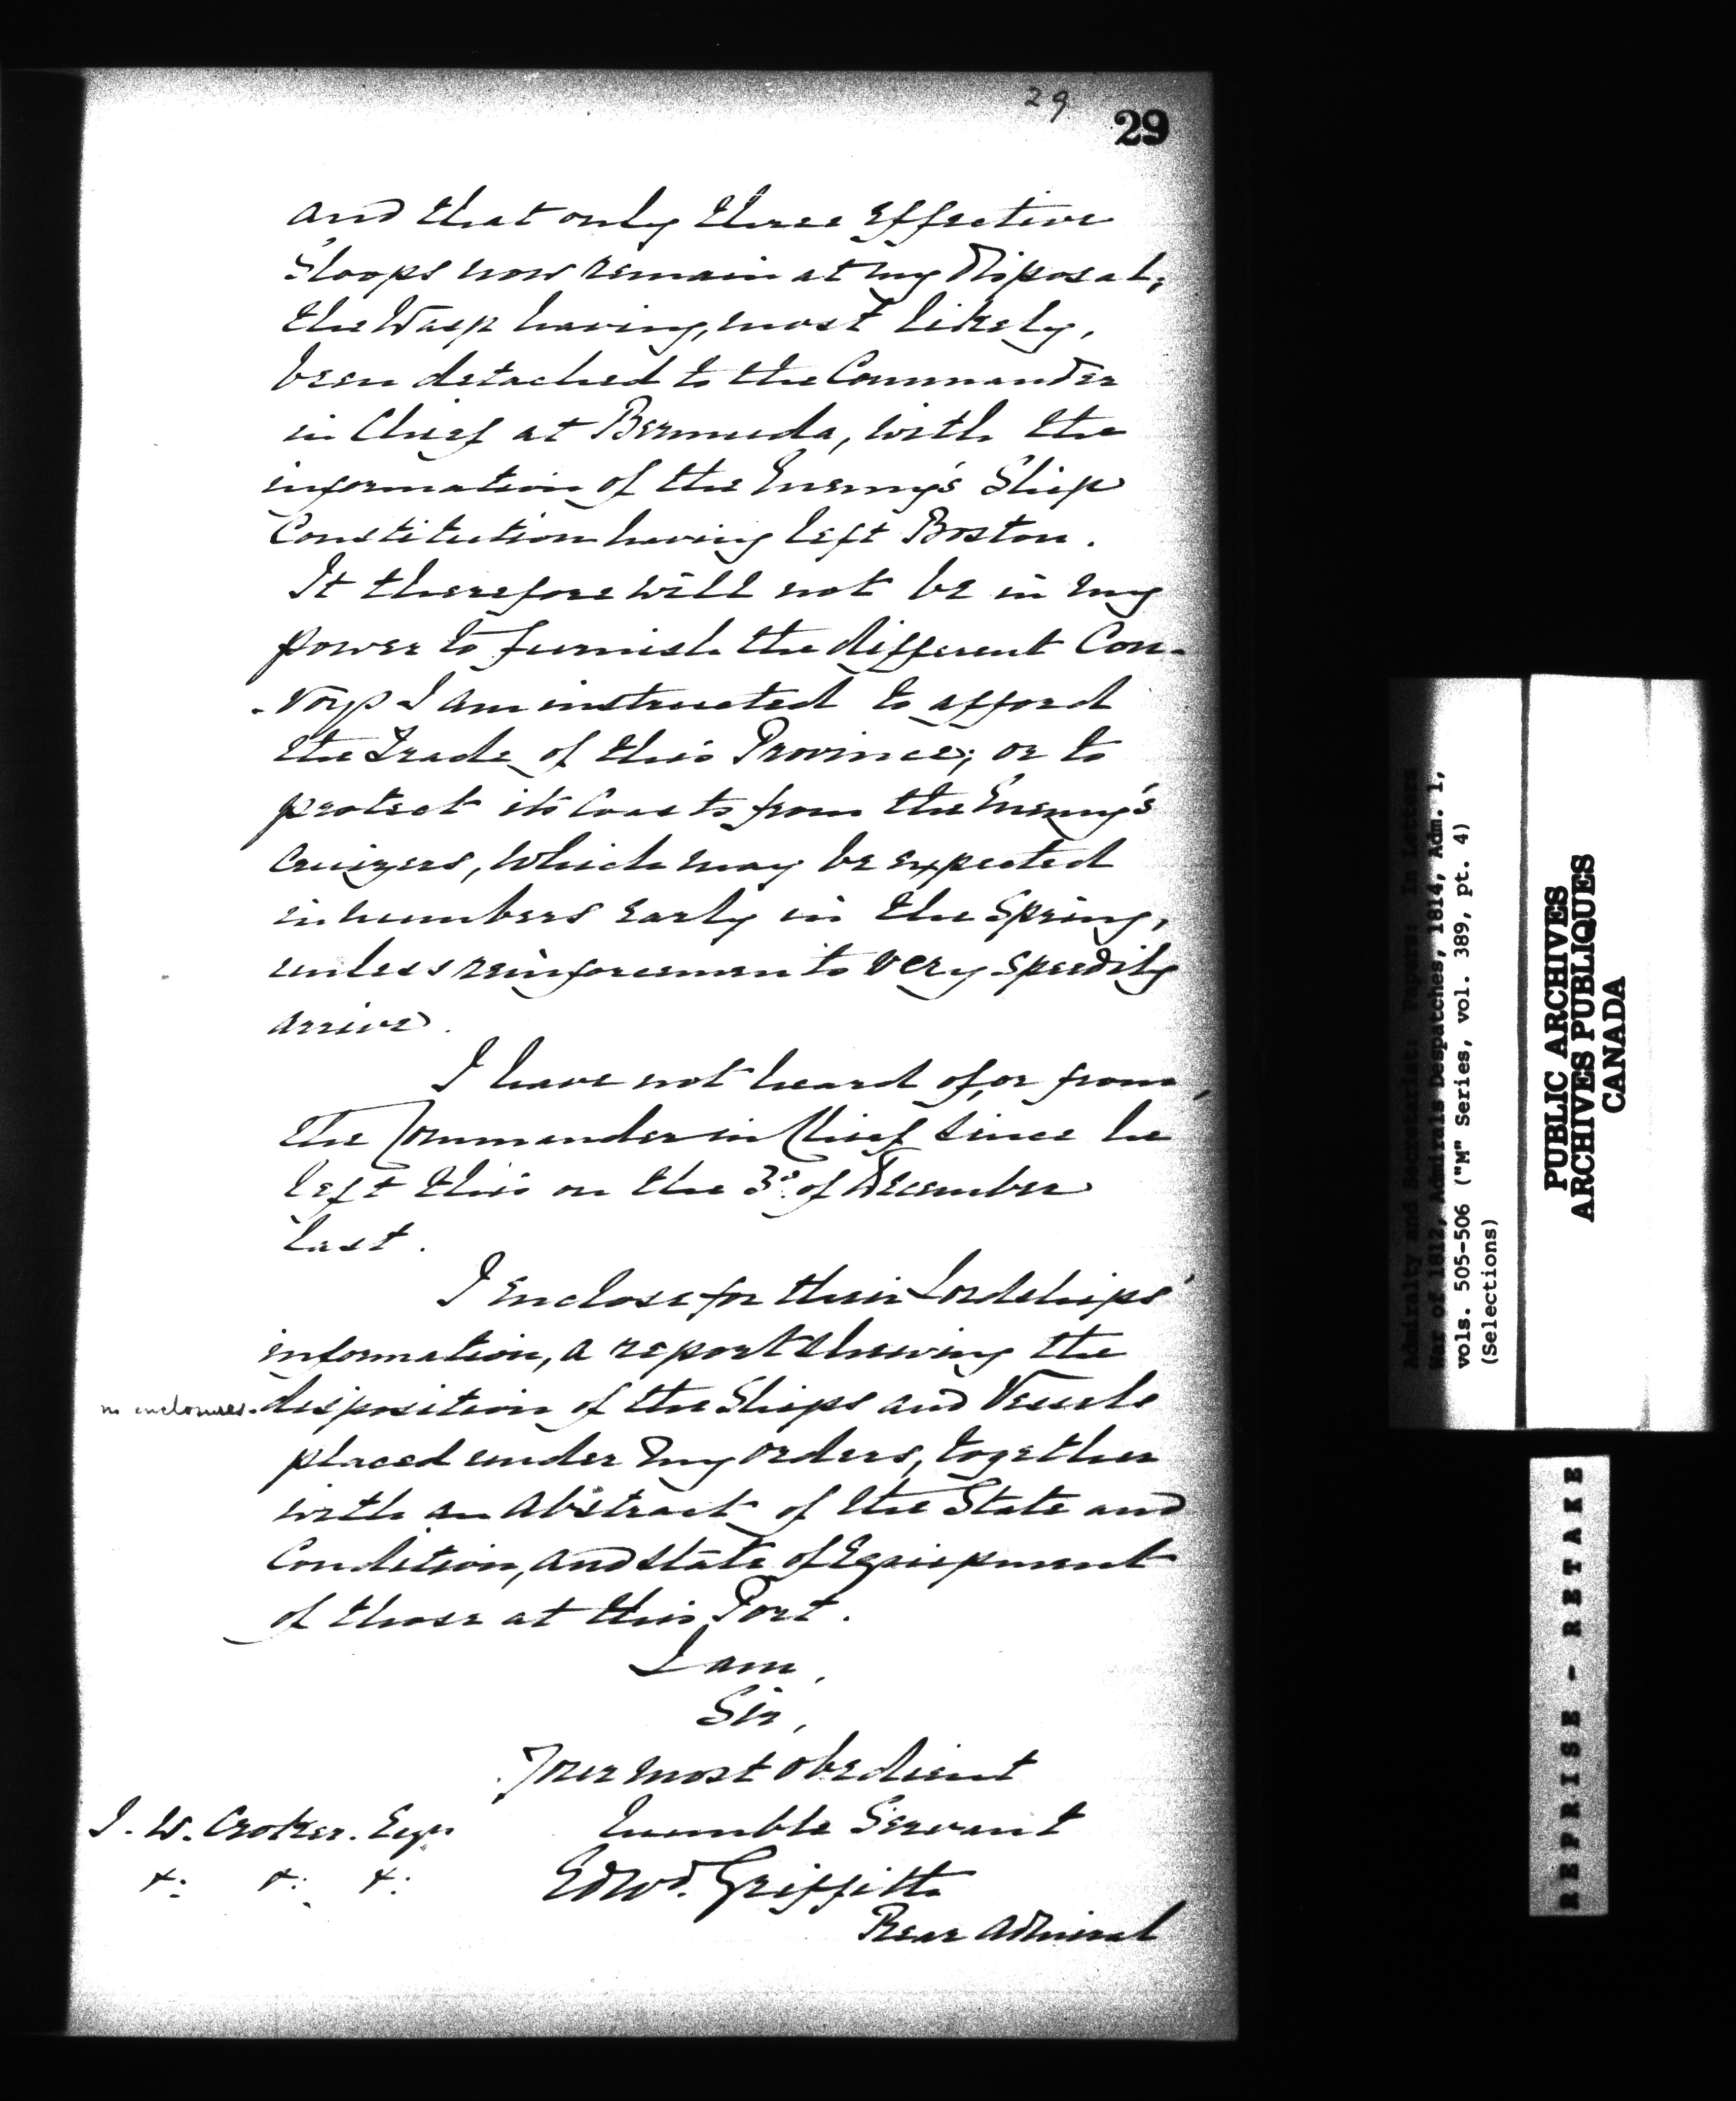 29
29
and that only three Effective
Sloops now remain at my Disposal,
the Wasp having, most likely,
been detached to the Commander
in Chief at Bermuda, with the
information of the Enemy's Ship
Constitution having left Boston.
It therefore will not be in my
power to furnish the different Con-
-voys I am instructed to afford
the Trade of this Province; or to
protect its Coasts from the Enemy's
Cruizers, which may be expected
in numbers early in the Spring,
unless reinforcements very speedily
arrive.
I have not heard of, or from,
the Commander in Chief since he
left this on the 3d. of December
last.
I Enclose for their Lordships'
information, a report shewing the
no enclosures. disposition of the Ships and Vessels
placed under my orders, together
with an Abstract of the State and
Condition, and state of Equipment
of those at this Port.
I am,
Sir,
Your most obedient
humble Servant
J. W. Croker. Esqr.
&: &: &:
Edwd. Griffith
Rear Admiral
Admiralty and Secretariat: Papers: In Letters
War of 1812, Admirals Despatches, 1814, Adm. 1,
vols. 505-506 ("M" Series, vol. 389, pt. 4)
(Selections)
PUBLIC ARCHIVES
ARCHIVES PUBLIQUES
CANADA
REPRISE - RETAKE